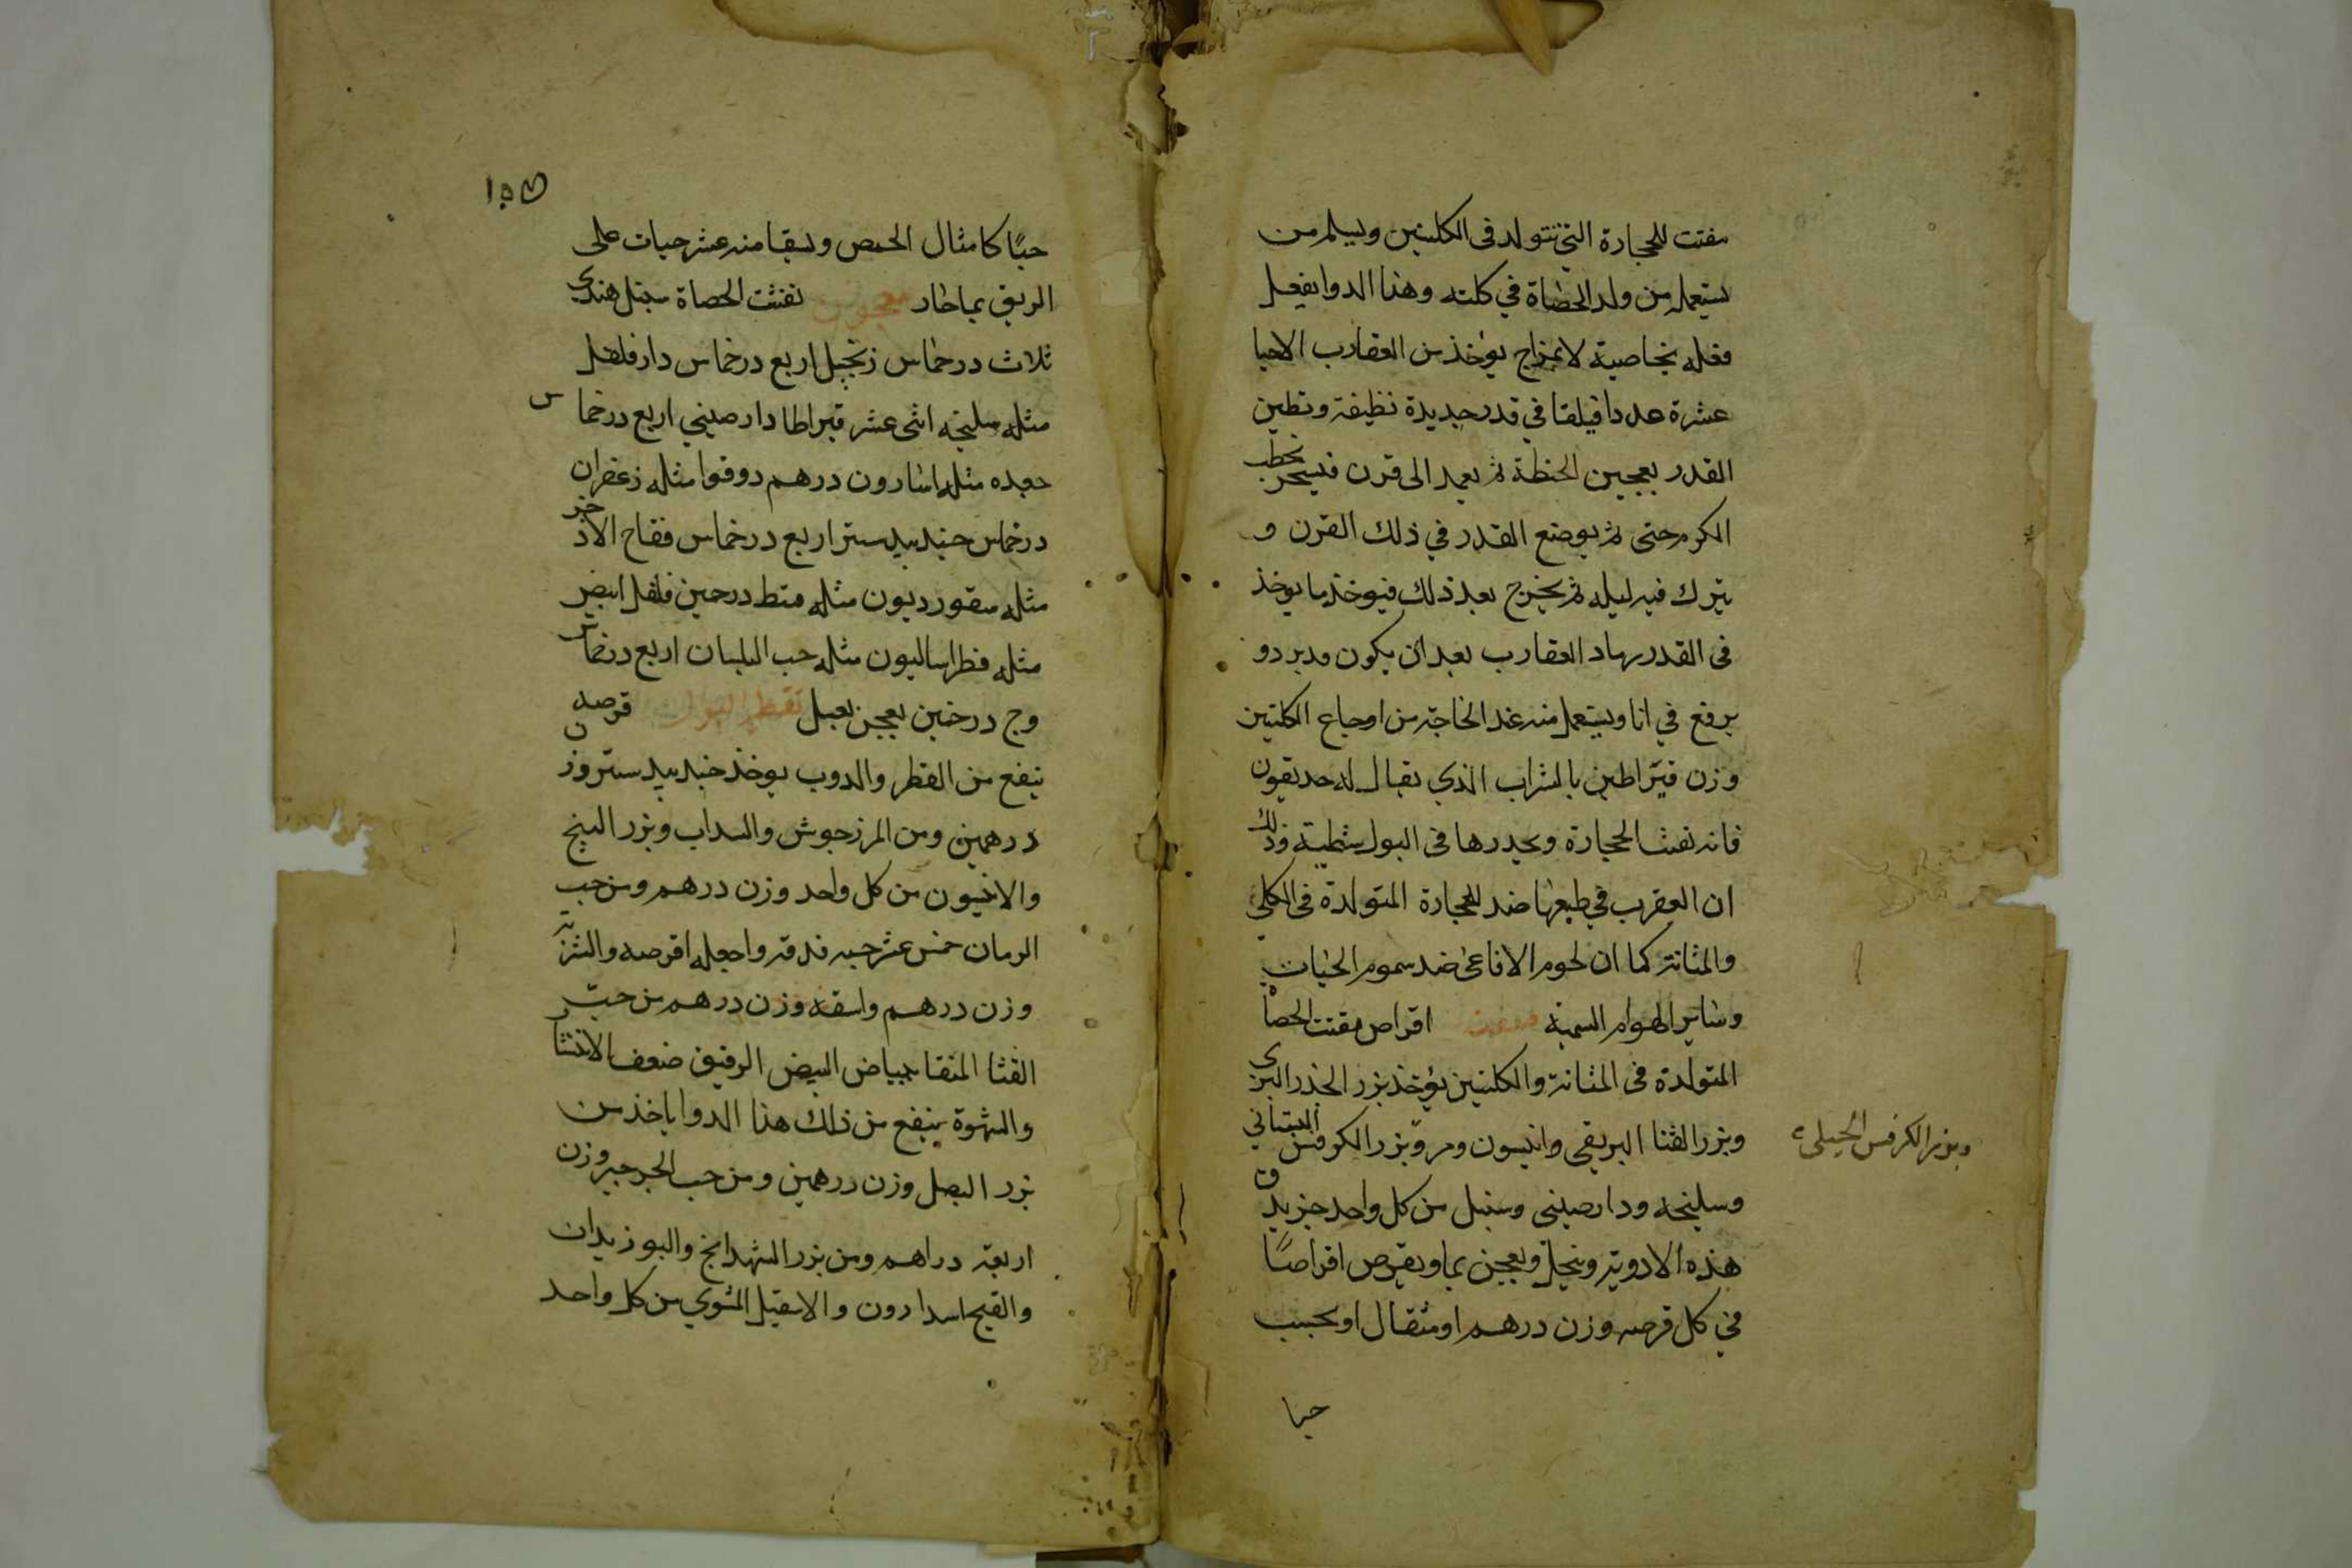 مفتت للحجارة التي تتولد فى الكليتين ويسلم من
يستعمله من ولد الحصاة في كلته وهذا الدوا يفعل
فعله بخاصية لا بمزاج يؤخذ من العقارب الاحيا
عشرة عددا فيلقا في قدر جديدة نظيفة وتطين
القدر بعجين الحنطة ثم يعمد الى فرن فيسجر بحطب
الكرم حتى ثم يوضع القدر في ذلك الفرن و
يترك فيه ليله ثم يخرج بعد ذلك فيوخذ ما يوخذ
فى القدر رماد العقارب بعد ان يكون قد برد و
يرفع في انا ويستعمل منه عند الحاجة من اوجاع الكليتين
وزن قيراطين بالشراب الذي يقال له حديقون
فانه تفتت الحجارة ويحدرها فى البول شظية وذلك
ان العقرب في طبعها ضد للحجارة المتولدة فى الكلى
والمثانة كما ان لحوم الافاعى ضد سموم الحيات
وساير الهوام السمية صفة اقراص مفتت الحصا
المتولدة فى المثانة والكليتين يؤخذ بزر الجزر البرى
وبزر القثا البريقى وانيسون ومر وبزر الكرفس البستاني
وبزر الكرفس الجبلى
وسليخه ودارصيني وسنبل من كل واحد جز يدق
هذه الادوية وينخل ويعجن بما ويقرص اقراصًا
في كل قرصه وزن درهم او مثقال او يحبب
حبا
١٥٧
حبًا كامثال الحمص ويسقا منه عشر حبات على
الريق بما حار معجون تفتت الحصاة سنبل هندى
ثلاث درخماس زنجبيل اربع درخماس دارفلفل
مثله سليخه اثنى عشر قيراطا دارصيني اربع درخماس
جعده مثله اسارون درهم دوقوا مثله زعفران
درخماس جندبيدستر اربع درخماس فقاح الاذخر
مثله سقورديون مثله قسط درحمين فلفل ابيض
مثله فطراساليون مثله حب البلسان اربع درخماس
وج درخمين يعجن بعسل تقطير البول قرصه
ينفع من القطر والدوب يوخذ جندبيدستر وزن
درهمين ومن المرزجوش والسداب وبزر البنج
والانيسون من كل واحد وزن درهم ومن حب
الرمان خمس عشر حبه فدقه واجعله اقرصه والشربة
وزن درهم واسقه وزن درهم من حب
القثا المنقا ببياض البيض الرقيق ضعف الانتشار
والشهوة ينفع من ذلك هذا الدوا ياخذ من
بزر البصل وزن درهمين ومن حب الجرجير وزن
اربعة دراهم ومن بزر الشهدانج والبوزيدان
والقيح اسدارون والاسقيل المشوي من كل واحد